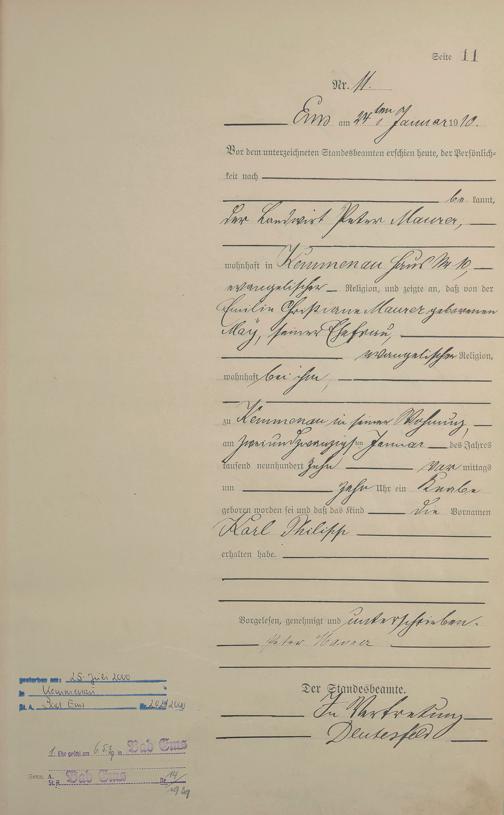 Seite 11
Nr. 11.
Ems am 24ten Januar 1910.
Vor dem unterzeichneten Standesbeamten erschien heute, der Persönlich-
keit nach
be kannt,
der Landwirt Peter Maurer,
wohnhaft in Kemmenau Haus Nr 10,
evangelischer Religion, und zeigte an, daß von der
Emilie Christiane Maurer geborenen
May, seiner Ehefrau,
evangelischer Religion,
wohnhaft bei ihm,
zu Kemmenau in seiner Wohnung,
am zweiundzwanzigsten Januar des Jahres
tausend neunhundert zehn vor mittags
um zehn Uhr ein Knabe
geboren worden sei und daß das Kind die Vornamen
Karl Philipp
erhalten habe.
Vorgelesen, genehmigt und unterschrieben.
Peter Maurer
Der Standesbeamte.
In Vertretung
gestorben am: 25. Juli 2000
in Kemmenau
St. A. Bad Ems Nr.
1. Ehe getr. am in Bad Ems
St. A. Bad Ems Nr. 14/